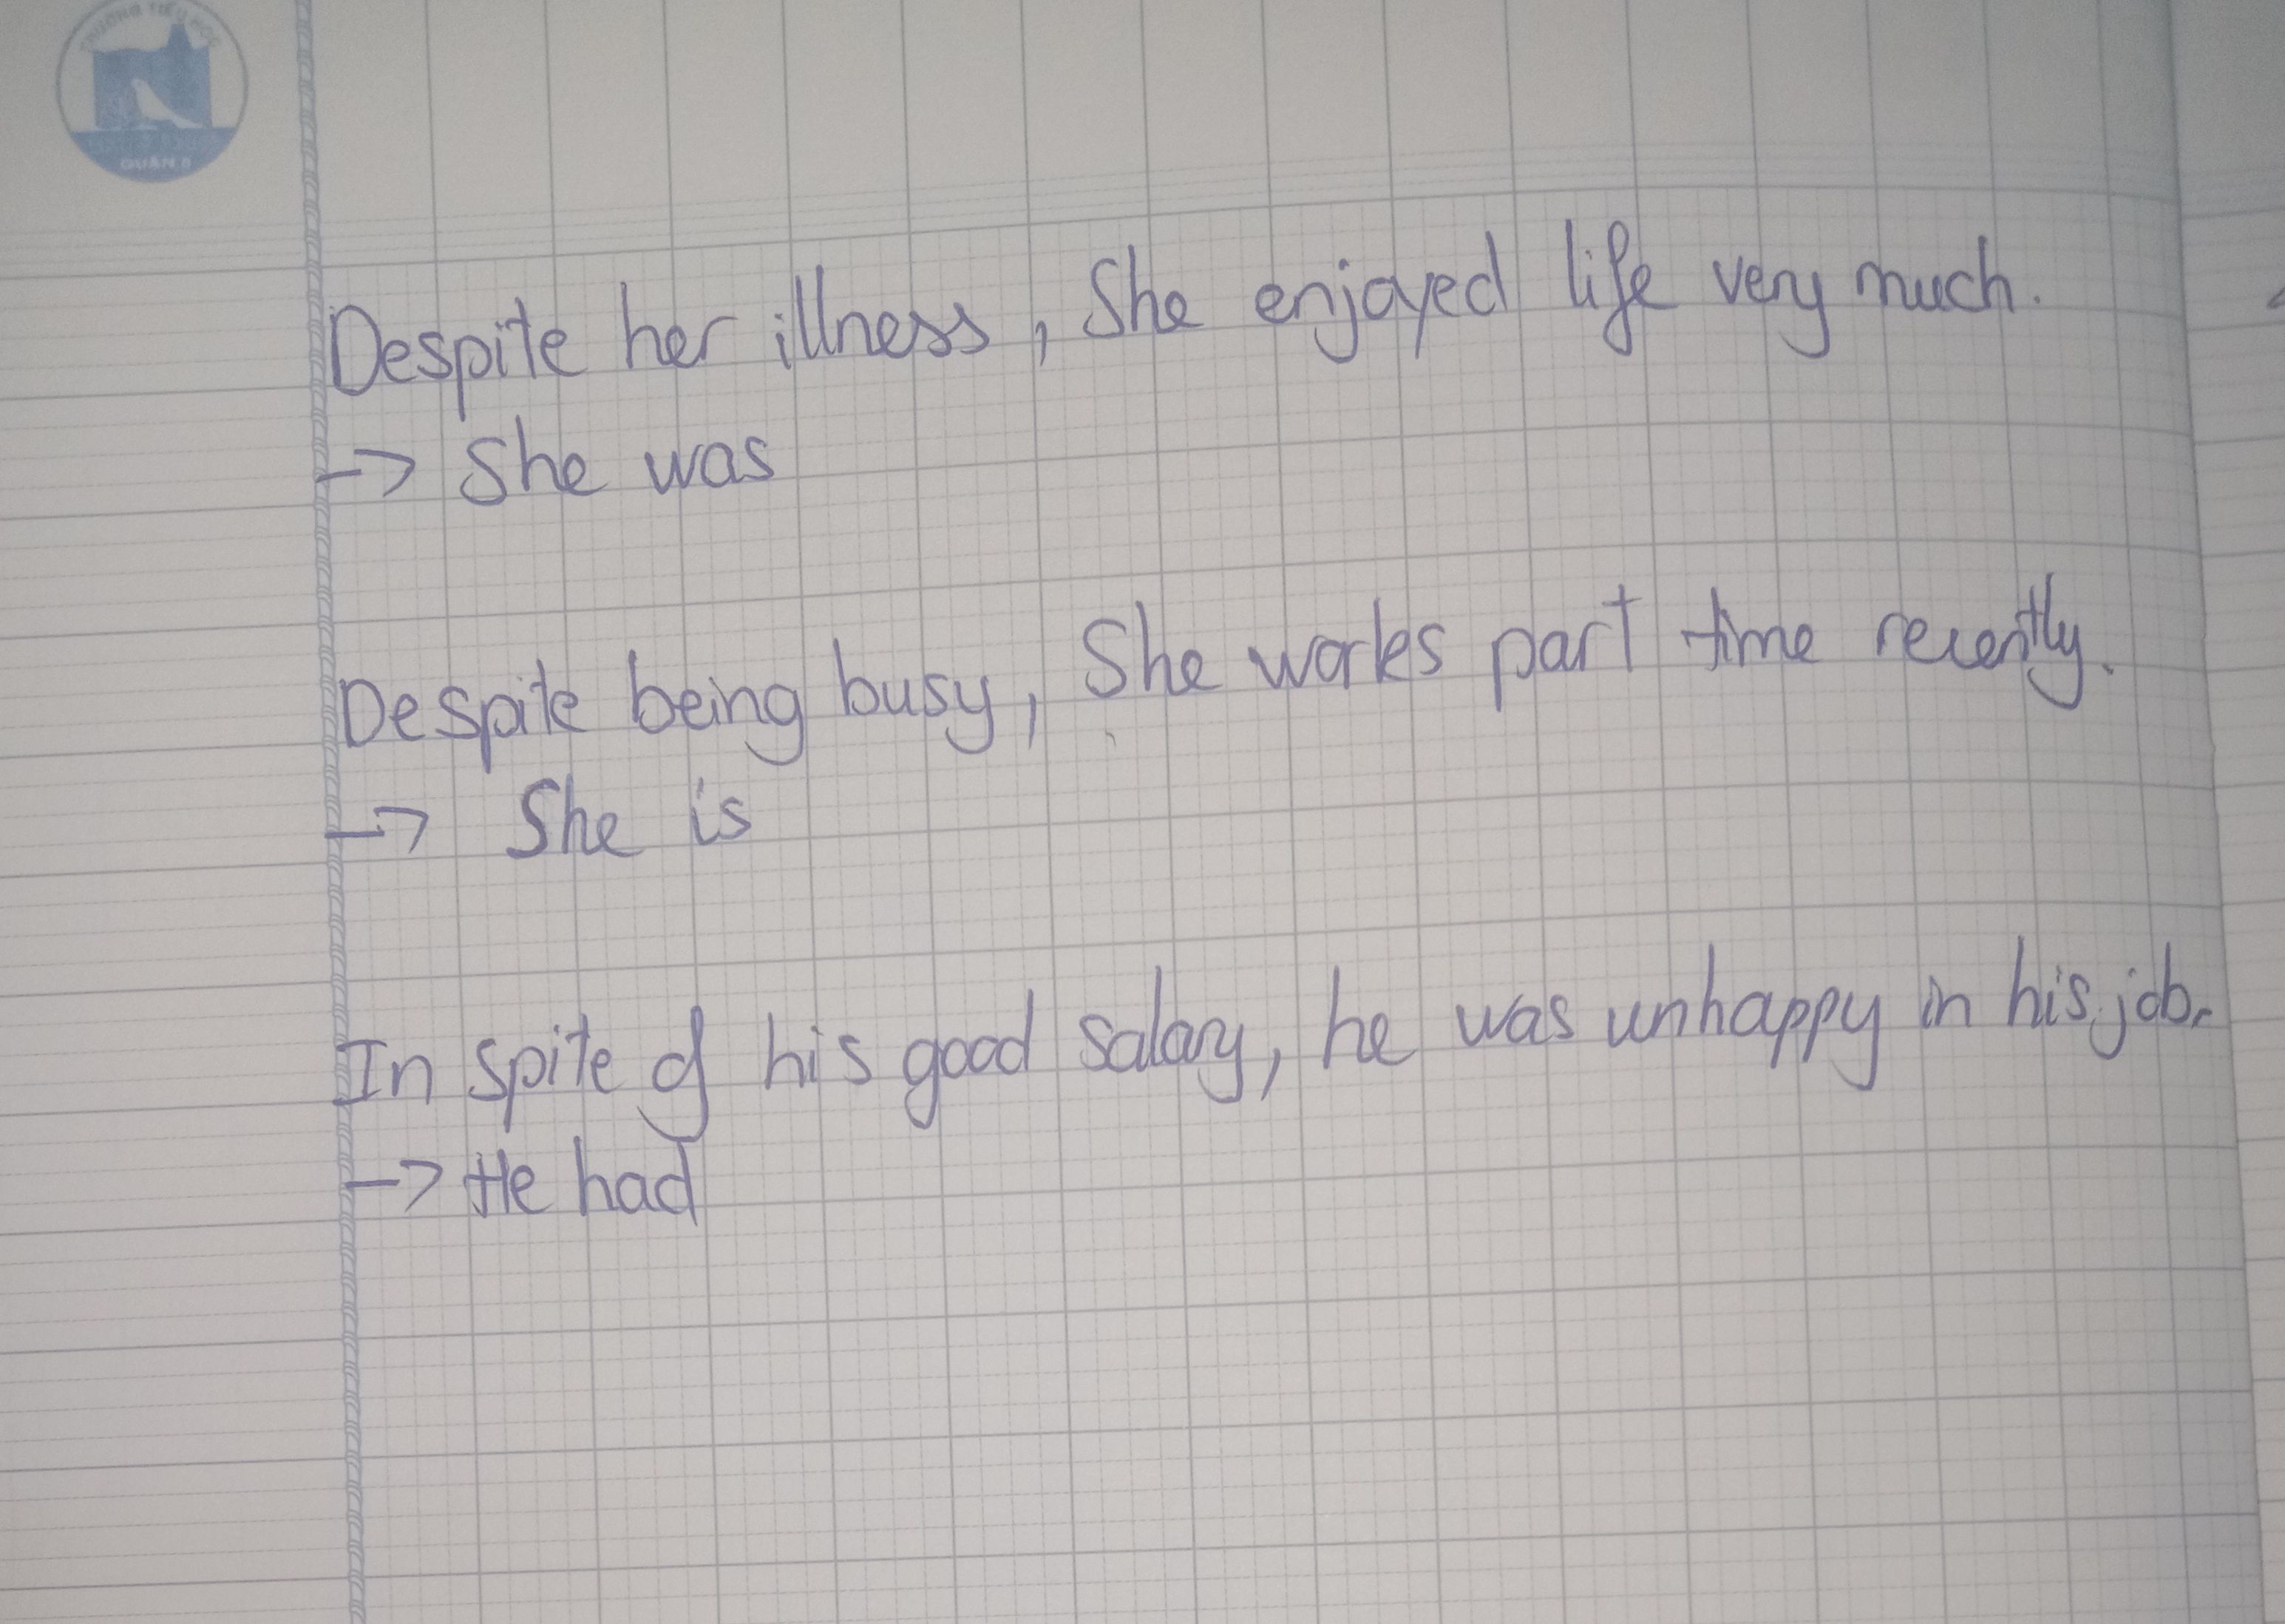 QUẬN 5
Despite her illness, She enjoyed life very much.
-> She was
Despite being busy, She works part time recently.
-> She is
In spite of his good salary, he was unhappy in his job.
-> He had